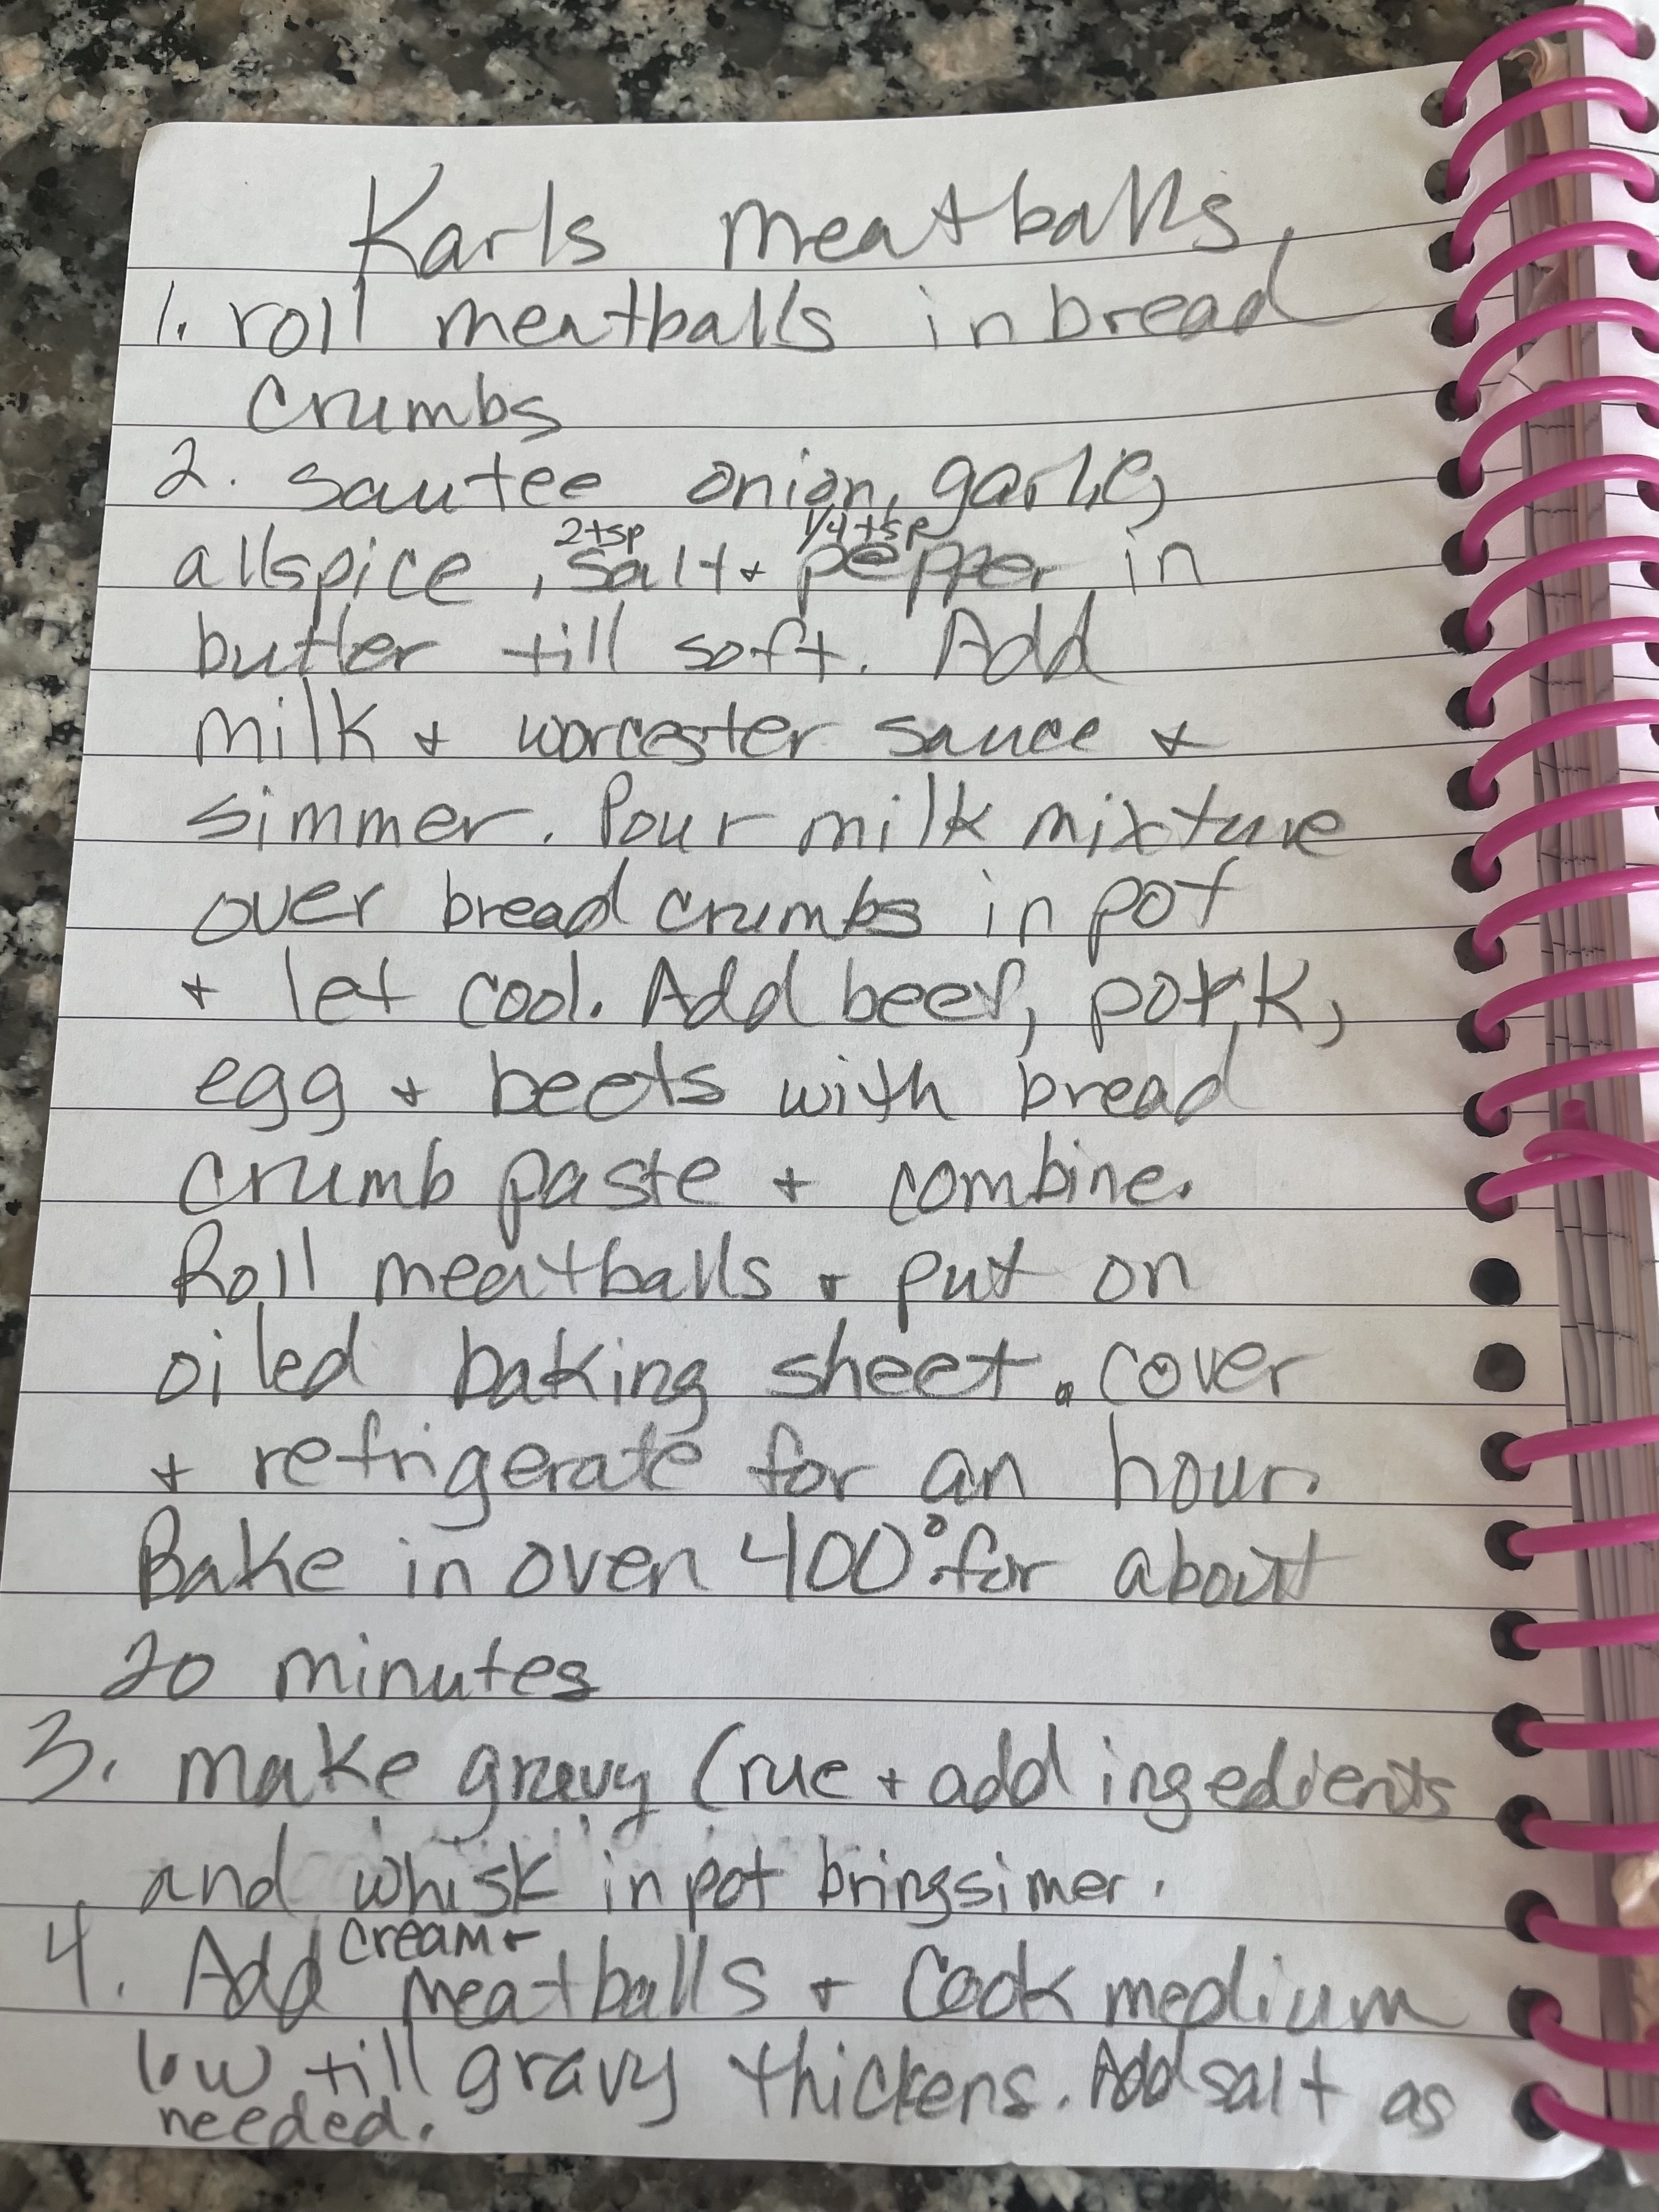 Karls meatballs
1. roll meatballs in bread
crumbs
2. sautee onion, garlic,
2tsp 1/4 tsp
allspice, salt + pepper in
butter till soft. Add
milk + worcester sauce +
simmer. Pour milk mixture
over bread crumbs in pot
+ let cool. Add beef, pork,
egg + beets with bread
crumb paste + combine.
Roll meatballs + put on
oiled baking sheet. cover
+ refrigerate for an hour.
Bake in oven 400° for about
20 minutes
3. make gravy (rue + add ingedients
and whisk in pot bring simer.
cream +
4. Add meatballs + Cook medium
low till gravy thickens. Add salt as
needed.